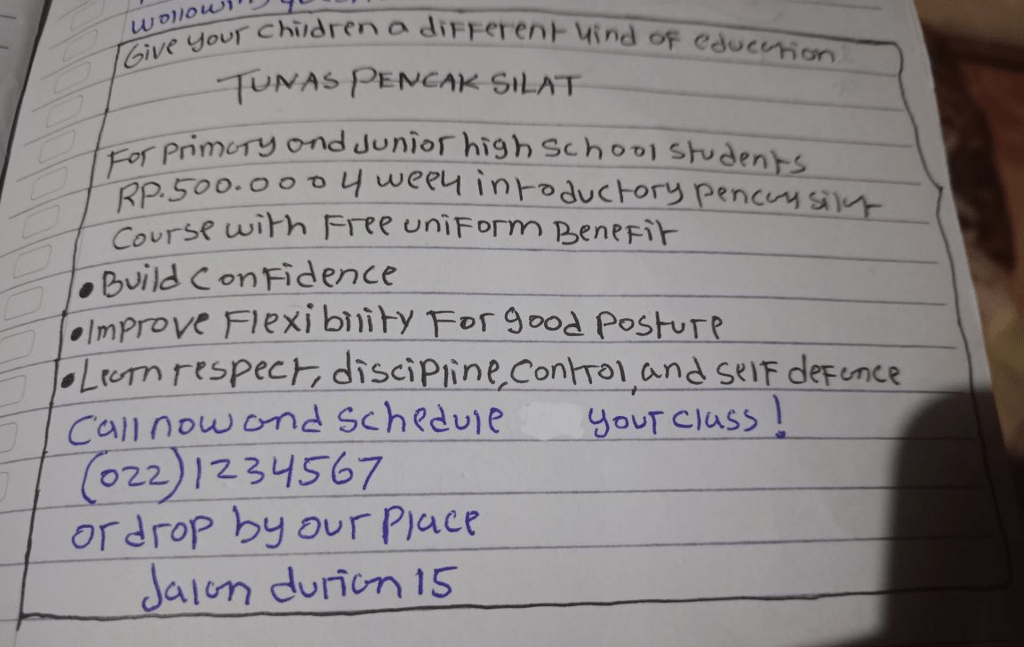 Give your children a different kind of education
TUNAS PENCAK SILAT
For primary and Junior high school students
RP.500.000 4 week introductory pencak silat
Course with Free uniform Benefit
• Build Confidence
• Improve Flexibility For good Posture
• Learn respect, discipline, control, and self defence
Call now and schedule your class!
(022)1234567
or drop by our place
Jalan durian 15